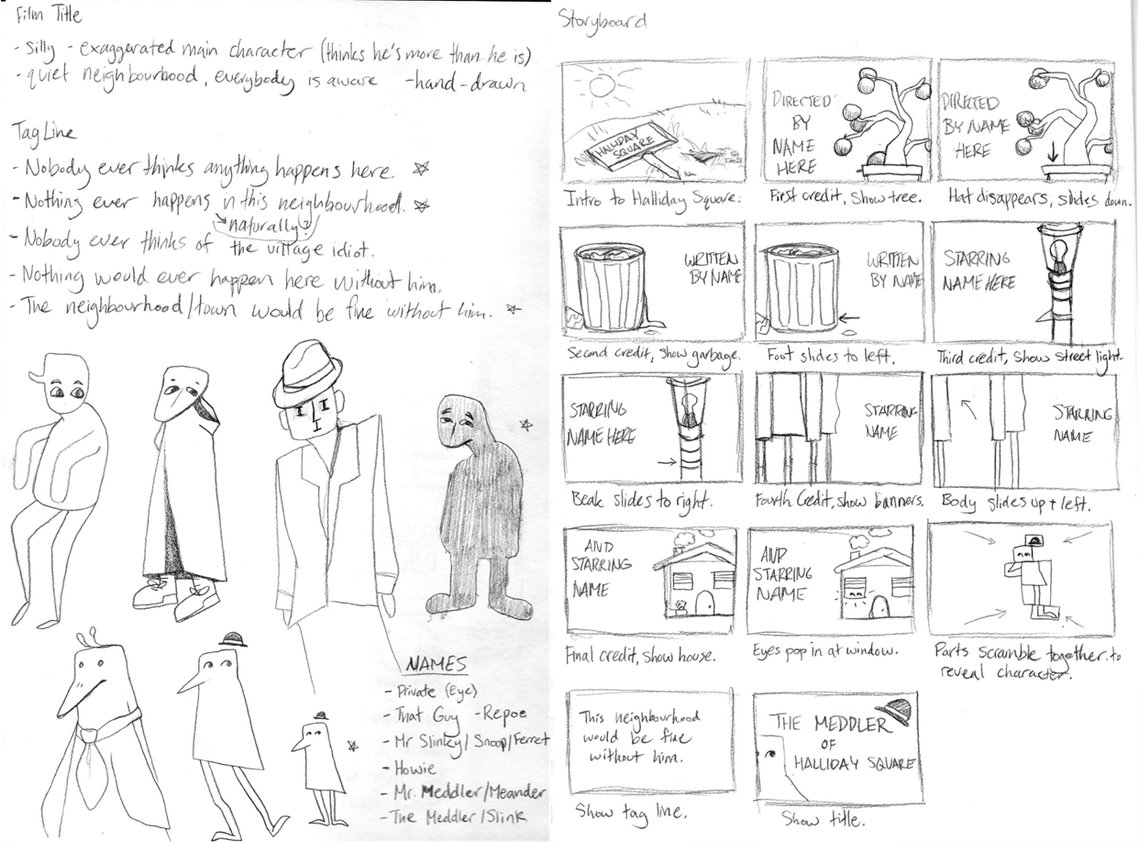 Film Title
- Silly - exaggerated main character (thinks he's more than he is)
- quiet neighbourhood, everybody is aware - hand-drawn
Tag Line
- Nobody ever thinks anything happens here.
- Nothing ever happens in this neighbourhood.
naturally?
- Nobody ever thinks of the village idiot.
- Nothing would ever happen here without him.
- The neighbourhood/town would be fine without him.
NAMES
- Private (Eye)
- That Guy - Repoe
- Mr Slinky/Snoop/Ferret
- Howie
- Mr. Meddler/Meander
- The Meddler/Slink
Storyboard
HALLIDAY
SQUARE
Intro to Halliday Square.
DIRECTED
BY
NAME
HERE
First credit, Show tree.
DIRECTED
BY NAME
HERE
Hat disappears, slides down.
WRITTEN
BY NAME
Second credit, show garbage.
WRITTEN
BY NAME
Foot slides to left.
STARRING
NAME HERE
Third credit, Show street light.
STARRING
NAME HERE
Beak slides to right.
STARRING
NAME
Fourth Credit, show banners.
STARRING
NAME
Body slides up + left.
AND
STARRING
NAME
Final credit, show house.
AND
STARRING
NAME
Eyes pop in at window.
Parts scramble together to
reveal character.
This neighbourhood
would be fine
without him.
Show tag line.
THE MEDDLER
OF
HALLIDAY SQUARE
Show title.